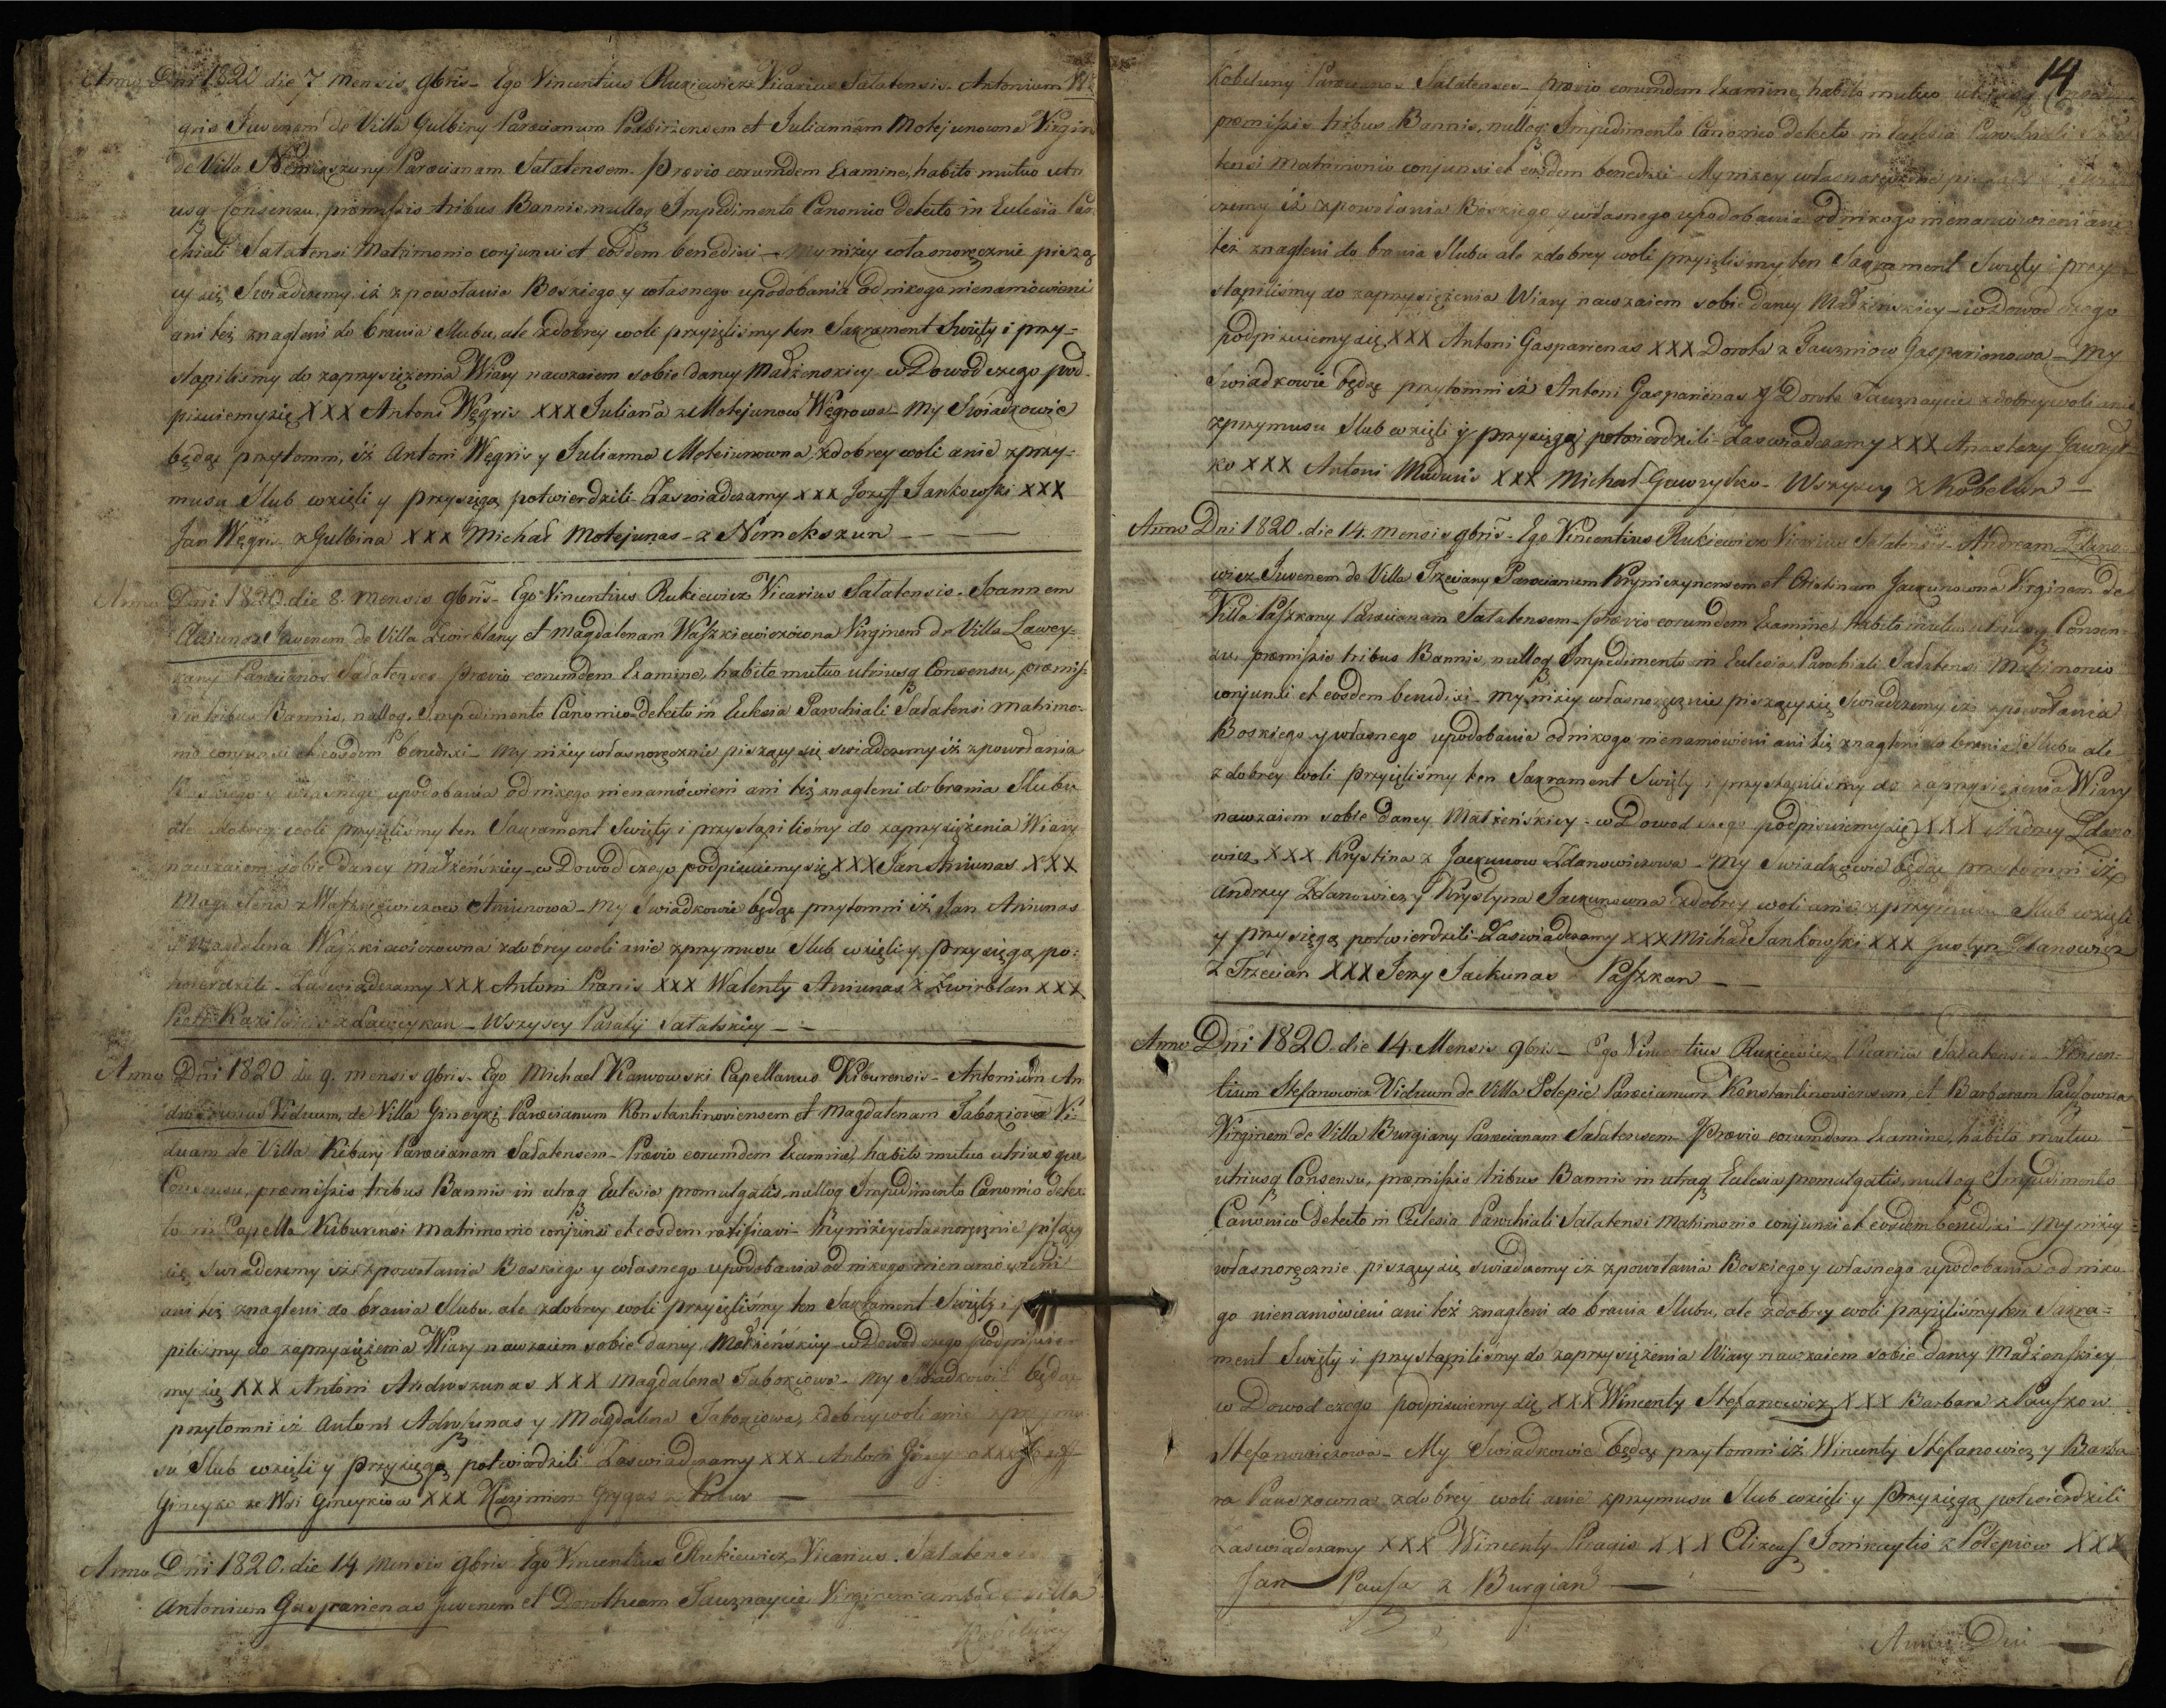 Anno Dni 1820 die 7 mensis 9bris - Ego Vincentius Rukiewicz Vicarius Salatensis - Antonium Wę
gris Juvenem de Villa Gulbiny Parœcianum Podbirżensem et Juliannam Motejunowna Virgin
de Villa Nemekszuny Parœcianam Salatensem. Prævio eorumdem Examine, habito mutuo utri
usq Consensu, præmissis tribus Bannis, nulloq Impedimento Canonico detecto in Eclesia Par
chiali Salatensi Matrimonio conjunxi et eosdem benedixi - My niżey własnoręcznie pisząc
y się Swiadczemy iż z powołania Boskiego y własnego upodobania od nikogo nienamówieni
ani też znagleni do brania Slubu, ale z dobrey woli przyięliśmy ten Sakrament Swięty i przy=
stąpiliśmy do zaprzysiężenia Wiary nawzaiem sobie daney Małżenskiey w Dowod czego pod-
pisuiemy się XXX Antoni Węgris XXX Julianna z Motejunow Węgrowa - My Swiadkowie
będąc przytomni, iż Antoni Węgris y Julianna Motejunowna, z dobrey woli a nie z przy=
musu Slub wzięli y przysięgą potwierdzili - Zaswiadczamy XXX Jozeff Jankowski XXX
Jan Węgris z Gulbina XXX Michał Motejunas - z Nemekszun
Anno Dni 1820. die 8. Mensis 9bris - Ego Vincentius Rukiewicz Vicarius Salatensis - Joannem
Aniunas Juvenem de Villa Zwirblany et Magdalenam Waszkiewiczowna Virginem de Villa Lawey-
kany Parœcianos Salatenses Prævio eorumdem Examine, habito mutuo utriusq Consensu, præmis-
sis tribus Bannis, nulloq Impedimento Canonico detecto in Eclesia Parochiali Salatensi Matrimo-
nio conjunxi et eosdem benedixi - My niżey własnoręcznie piszący się swiadczemy iż z powołania
Boskiego y własnego upodobania od nikogo nienamówieni ani też znagleni do brania Slubu
ale z dobrey woli przyięliśmy ten Sakrament Swięty i przystąpiliśmy do zaprzysiężenia Wiary
nawzaiem sobie daney Małżeńskiey - w Dowod czego podpisuiemy się XXX Jan Aniunas XXX
Magdalena z Waszkiewiczow Aniunowa - My Swiadkowie będąc przytomni iż Jan Aniunas
i Magdalena Waszkiewiczowna z dobrey woli a nie z przymusu Slub wzięli y przysięgą po-
twierdzili - Zaswiadczamy XXX Antoni Pranis XXX Walenty Aniunas z Zwirblan XXX
Piotr z Laweykan - Wszyscy Parafij Sałatskiey
Anno Dni 1820 die 9. mensis 9bris - Ego Michael Karwowski Capellanus Kiburensis - Antonium An
druszunas Viduum, de Villa Gineyki Parœcianum Konstantinoviensem et Magdalenam Taboriowa Vi-
duam de Villa Kibury Parœcianam Salatensem - Prævio eorumdem Examine, habito mutuo utriusque
Consensu, præmissis tribus Bannis in utraq Eclesia promulgatis, nulloq Impedimento Canonico detec
to in Capella Kiburensi Matrimonio conjunxi et eosdem ratificavi - My niżey własnoręcznie piszący
się, Swiadczemy iż z powołania Boskiego y własnego upodobania od nikogo nienamówieni
ani też znagleni do brania Slubu, ale z dobrey woli przyięliśmy ten Sakrament Swięty i
piliśmy do zaprzysiężenia Wiary nawzaiem sobie daney Małżeńskiey - w Dowod czego podpisuie-
my się XXX Antoni Andruszunas XXX Magdalena Taboriowa - My Swiadkowie będąc
przytomni iż Antoni y Magdalena Taboriowa, z dobrey woli a nie z przymu
su Slub wzięli y Przysięgą potwierdzili Zaswiadczamy XXX Antoni XXX
Gineyko ze Wsi Gineykiow XXX Kazimierz Grygas z Kibur
Anno Dni 1820. die 14 Mensis 9bris Ego Vincentius Rukiewicz Vicarius Salatensis
Antonium Gasparienas Juvenem et Dorotheam Tauznaycie Virginem ambos e Villa
Kobeluny
14
Kobeluny Parœcianos Salatenses - Prævio eorumdem Examine, habito mutuo utriusq Consensu
præmissis tribus Bannis, nulloq Impedimento Canonico detecto in Eclesia Parochiali Sala
tensi Matrimonio conjunxi et eosdem benedixi - My niżey własnoręcznie
czemy iż z powołania Boskiego y własnego upodobania od nikogo nienamówieni ani
też znagleni do brania Slubu ale z dobrey woli przyięliśmy ten Sakrament Swięty i przy-
stąpiliśmy do zaprzysiężenia Wiary nawzaiem sobie daney Małżeńskiey - w Dowod czego
podpisuiemy się XXX Antoni Gasparienas XXX Dorota z Tauzniow Gasparienowa - My
Swiadkowie będąc przytomni iż Antoni Gasparienas y Dorota Tauznaycie z dobrey woli a nie
z przymusu Slub wzięli y przysięgą potwierdzili - Zaswiadczamy XXX Anastazy Gawryl-
ko XXX Antoni XXX Michał Gawrylko - Wszyscy z Kobelun
Anno Dni 1820. die 14. Mensis 9bris - Ego Vincentius Rukiewicz Vicarius Salatensis - Andream Zdano-
wicz Juvenem de Villa Trzeciany Parœcianum Krynizynensem et Cristinam Jackunowna Virginem de
Villa Paszkany Parœcianam Salatensem - Prævio eorumdem Examine, habito mutuo utriusq Consen-
su, præmissis tribus Bannis, nulloq Impedimento in Eclesia Parochiali Salatensi Matrimonio
conjunxi et eosdem benedixi - My niżey własnoręcznie piszący się Swiadczemy iż z powołania
Boskiego y własnego upodobania od nikogo nienamówieni ani też znagleni do brania Slubu ale
z dobrey woli przyięliśmy ten Sakrament Swięty i przystąpiliśmy do zaprzysiężenia Wiary
nawzaiem sobie daney Małżeńskiey - w Dowod czego podpisuiemy się XXX Andrzey Zdano
wicz XXX Krystina z Jackunow Zdanowiczowa - My Swiadkowie będąc przytomni iż
Andrzey Zdanowicz y Krystyna Jackunowna z dobrey woli a nie z przymusu Slub wzięli
y przysięgą potwierdzili - Zaswiadczamy XXX Michał Jankowski XXX Justyn Zdanowicz
z Trzecian XXX Jerzy Jackunas Paszkan
Anno Dni 1820. die 14. Mensis 9bris - Ego Vincentius Rukiewicz Vicarius Salatensis - Vincen-
tium Stefanowicz Viduum de Villa Polepie Parœcianum Konstantinoviensem, et Barbaram Pauszowna
Virginem de Villa Burgiany Parœcianam Salatensem - Prævio eorumdem Examine, habito mutuo
utriusq Consensu, præmissis tribus Bannis in utraq Eclesia promulgatis, nulloq Impedimento
Canonico detecto in Eclesia Parochiali Salatensi Matrimonio conjunxi et eosdem benedixi - My niżey
własnoręcznie piszący się swiadczemy iż z powołania Boskiego y własnego upodobania od niko-
go nienamówieni ani też znagleni do brania Slubu, ale z dobrey woli przyięliśmy ten Sakra=
ment Swięty i przystąpiliśmy do zaprzysiężenia Wiary nawzaiem sobie daney Małżenskiey
w Dowod czego podpisuiemy się XXX Wincenty Stefanowicz XXX Barbara z Pauszow
Stefanowiczowa - My Swiadkowie będąc przytomni iż Wincenty Stefanowicz y Barba
ra Pauszowna z dobrey woli a nie z przymusu Slub wzięli y Przysięgą potwierdzili
Zaswiadczamy XXX Wincenty XXX Elizeusz z Polepiow XXX
Jan Pausza z Burgian
Anno Dni